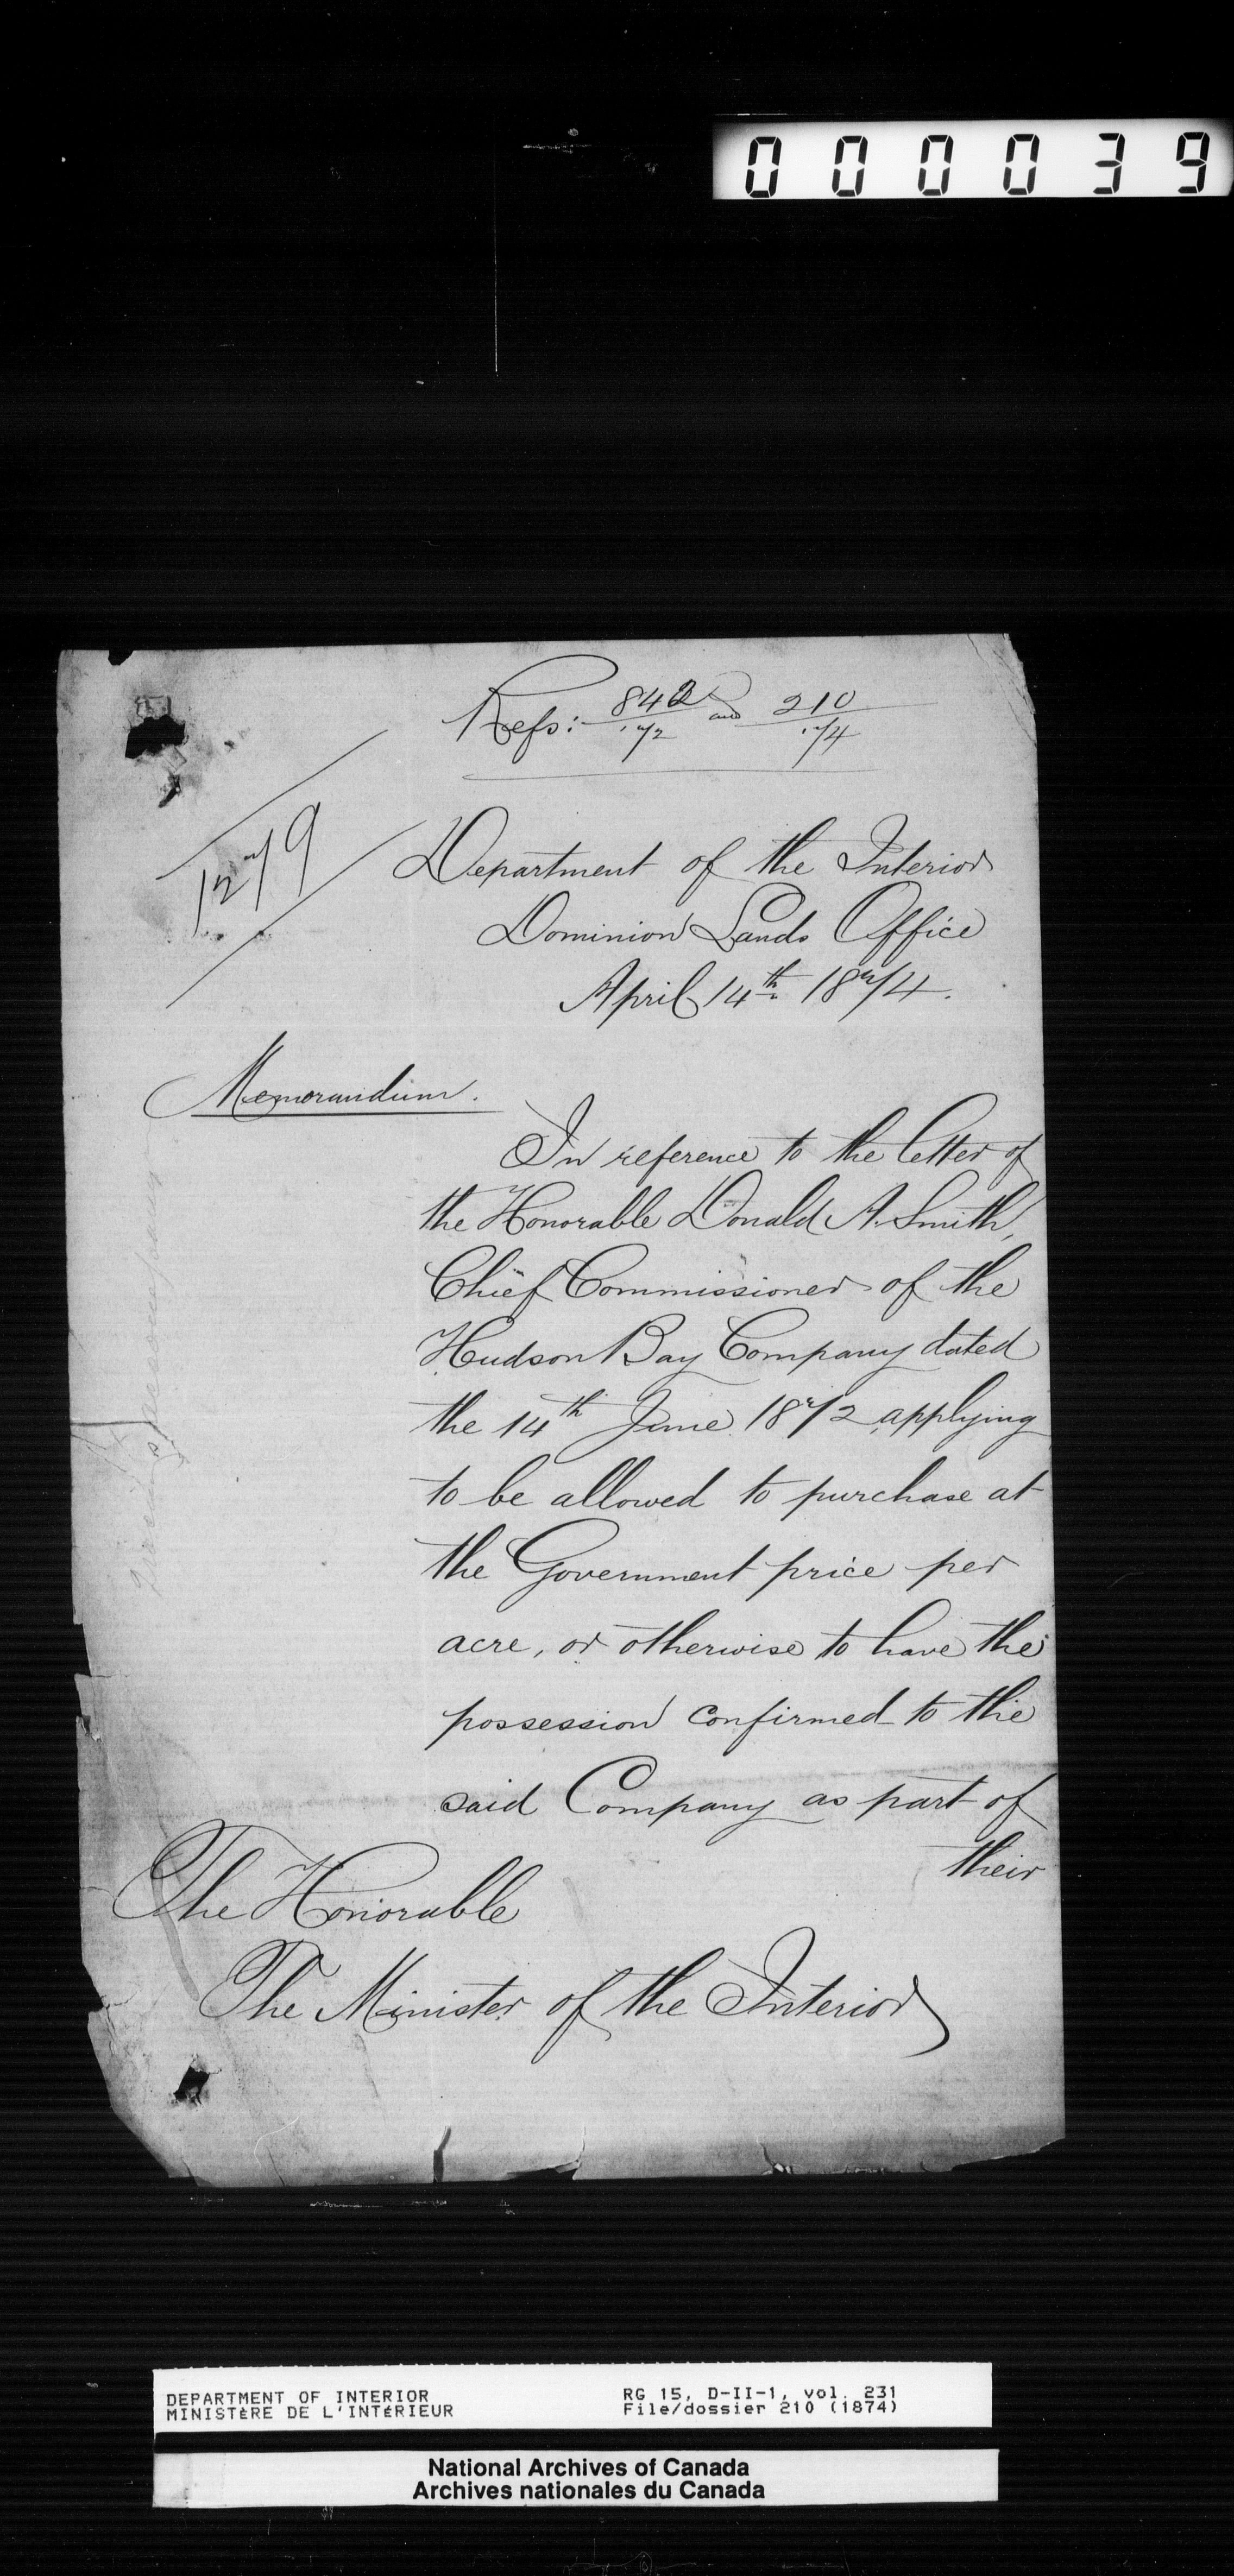 000039
Refs: 842/72 and 210/74
1279
Department of the Interior
Dominion Lands Office
April 14th 1874.
Memorandum.
In reference to the letter of
the Honorable Donald A. Smith,
Chief Commissioner of the
Hudson Bay Company dated
the 14th June 1872 applying
to be allowed to purchase at
the Government price per
acre, or otherwise to have the
possession confirmed to the
said Company as part of
their
The Honorable
The Minister of the Interior
DEPARTMENT OF INTERIOR
MINISTÈRE DE L'INTÉRIEUR
RG 15, D-II-1, vol. 231
File/dossier 210 (1874)
National Archives of Canada
Archives nationales du Canada